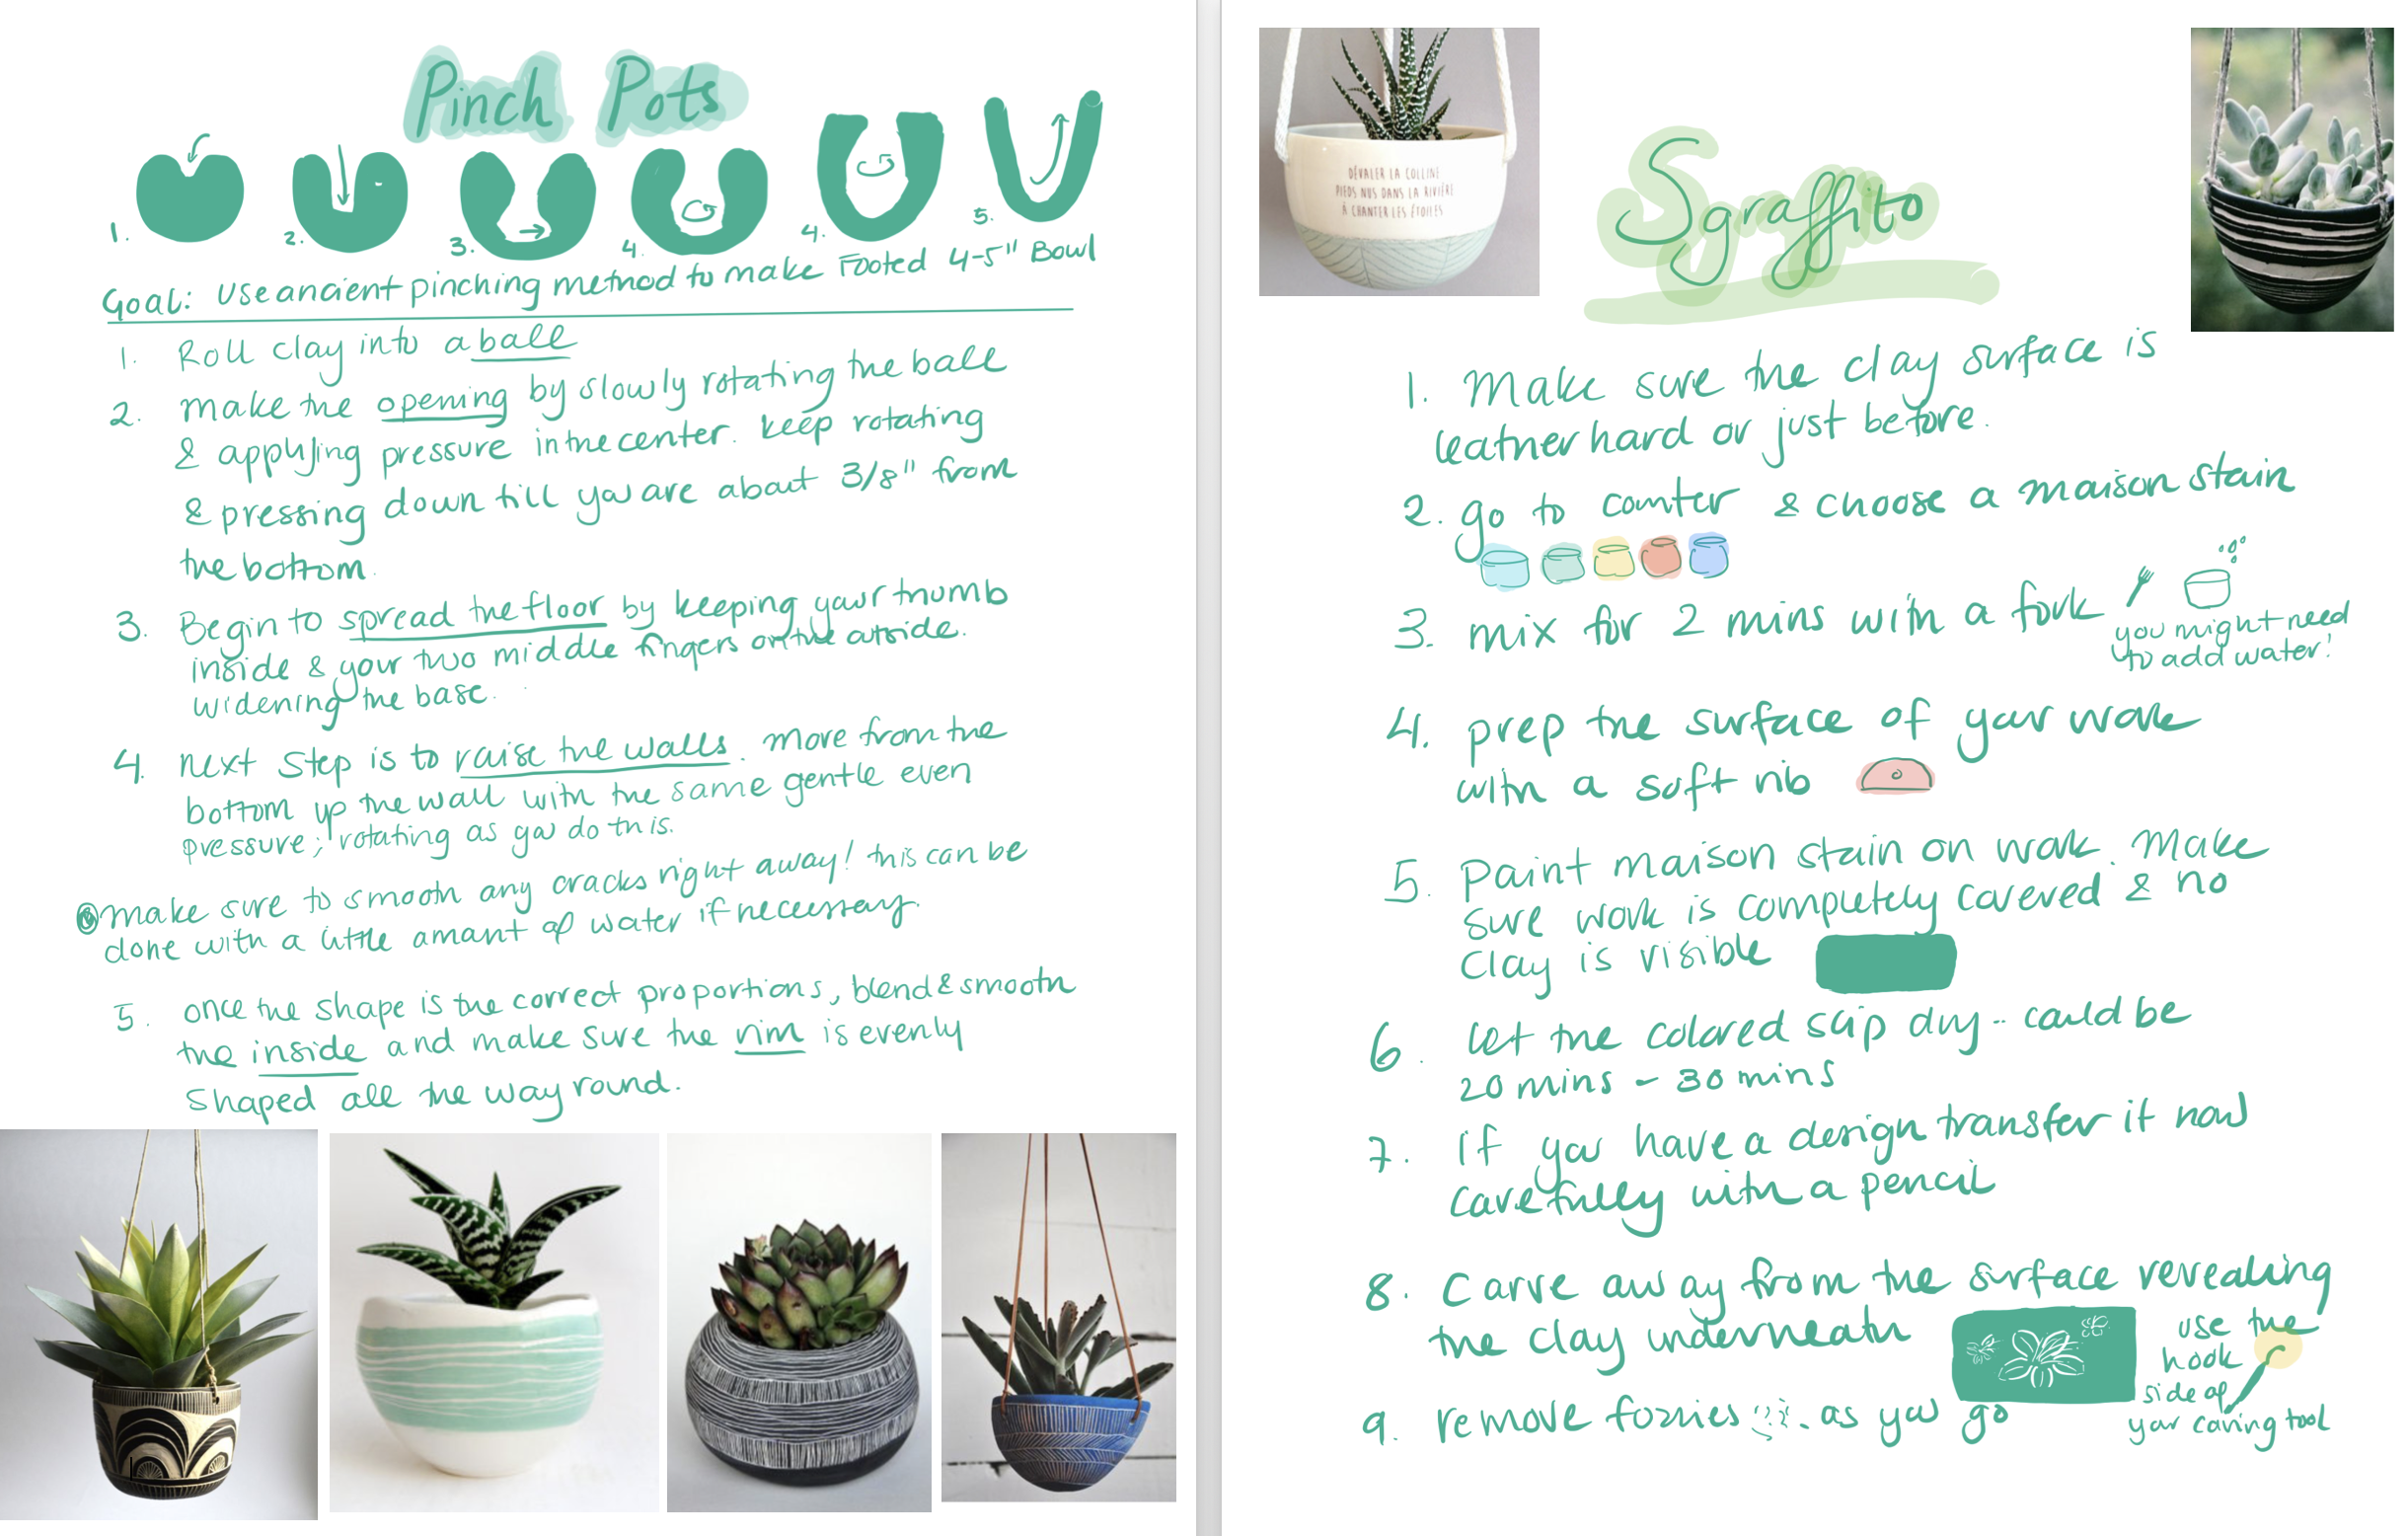 Pinch Pots
1.
2.
3.
4.
4.
5.
Goal: Use ancient pinching method to make Footed 4-5" Bowl
1. Roll clay into a ball
2. make the opening by slowly rotating the ball
& applying pressure in the center. keep rotating
& pressing down till you are about 3/8" from
the bottom.
3. Begin to spread the floor by keeping your thumb
inside & your two middle fingers on the outside.
widening the base.
4. next step is to raise the walls. more from the
bottom up the wall with the same gentle even
pressure; rotating as you do this.
make sure to smooth any cracks right away! this can be
done with a little amant of water if necessary.
5. once the shape is the correct proportions, blend & smooth
the inside and make sure the rim is evenly
shaped all the way round.
DÉVALER LA COLLINE
PIEDS NUS DANS LA RIVIÈRE
À CHANTER LES ÉTOILES
Sgraffito
1. Make sure the clay surface is
leather hard or just before.
2. go to counter & choose a maison stain
3. mix for 2 mins with a fork
you might need
to add water!
4. prep the surface of your work
with a soft rib
5. Paint maison stain on work. Make
sure work is completely covered & no
clay is visible
6. let the colored slip dry - could be
20 mins - 30 mins
7. If you have a design transfer it now
carefully with a pencil
8. Carve away from the surface revealing
the clay underneath
use the
hook
side of
your carving tool
9. remove fozzies as you go